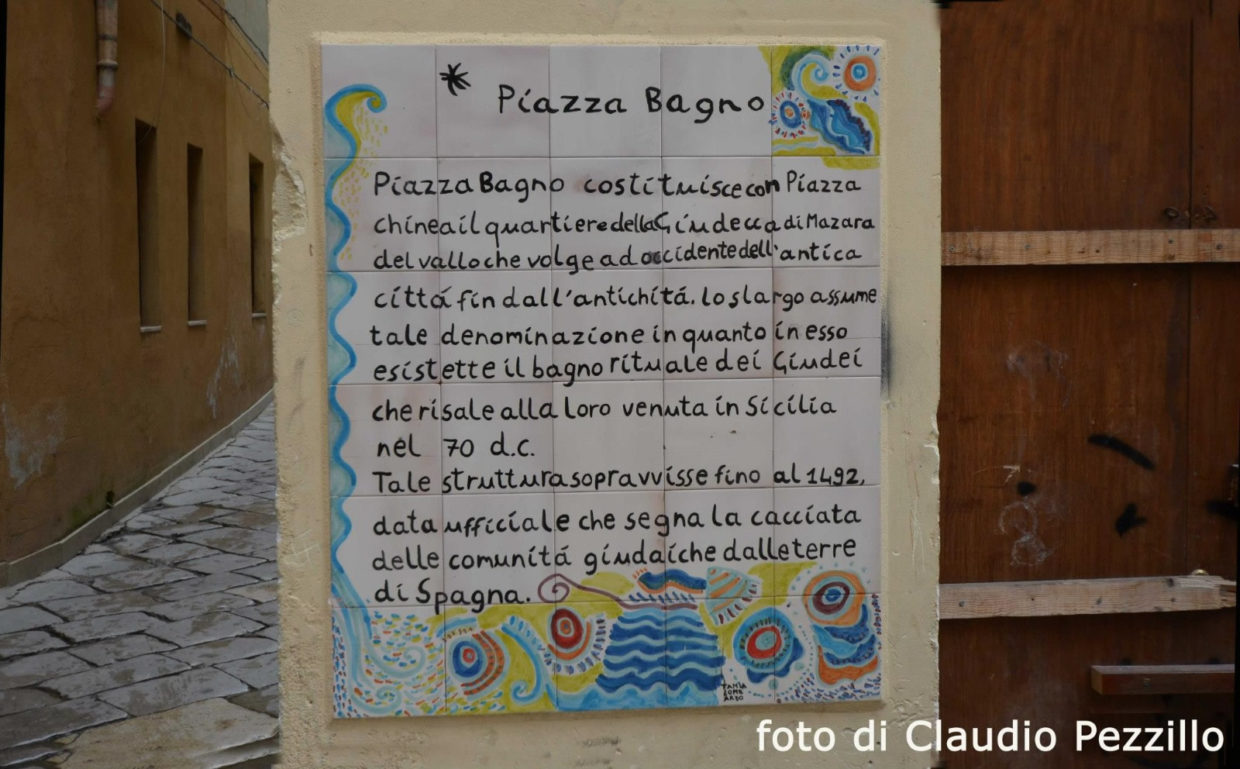 * Piazza Bagno
Piazza Bagno costituisce con Piazza
chinea il quartiere della Giudecca di Mazara
del vallo che volge ad occidente dell'antica
cittá fin dall'antichitá. lo slargo assume
tale denominazione in quanto in esso
esistette il bagno rituale dei Giudei
che risale alla loro venuta in Sicilia
nel 70 d.c.
Tale struttura sopravvisse fino al 1492,
data ufficiale che segna la cacciata
delle comunitá giudaiche dalle terre
di Spagna.
TANIA
LOMB
ARDO
foto di Claudio Pezzillo